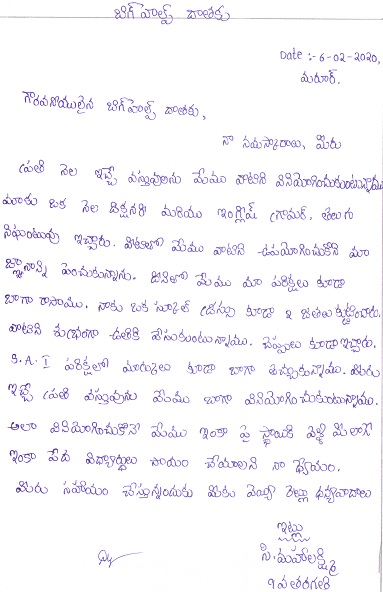 బిగ్ హెల్ప్ దాతకు
Date :- 6-02-2020,
మరూర్.
గౌరవనీయులైన బిగ్ హెల్ప్ దాతకు,
నా నమస్కారాలు, మీరు
ప్రతి నెల ఇచ్చే వస్తువులను మేము వాటిని వినియోగించుకుంటున్నాము
మాకు ఒక నెల డిక్షనరీ మరియు ఇంగ్లీష్ గ్రామర్, తెలుగు
నిఘంటువు ఇచ్చారు. వీటిలో మేము వాటిని ఉపయోగించుకొని మా
జ్ఞానాన్ని పెంచుకున్నాను. దీనిలో మేము మా పరీక్షలు కూడా
బాగా రాసాము. నాకు ఒక స్కూల్ డ్రెస్సు కూడా 2 జతలు కుట్టించారు.
వాటిని శుభ్రంగా ఉతికి వేసుకుంటున్నాము. చెప్పులు కూడా ఇచ్చారు.
S.A. I పరీక్షలో మార్కులు కూడా బాగా తెచ్చుకున్నాము. మీరు
ఇచ్చే ప్రతి వస్తువును మేము బాగా వినియోగించుకుంటున్నాము.
అలా వినియోగించుకొని మేము ఇంకా పై స్థాయికి వెళ్లి మీలాగే
ఇంకా పేద విద్యార్థులు సాయం చేయాలని నా ధ్యేయం.
మీరు సహాయం చేస్తున్నందుకు మీకు వెయ్యి రెట్లు ధన్యవాదాలు
ఇట్లు
సి. మహాలక్ష్మి
9 వ తరగతి